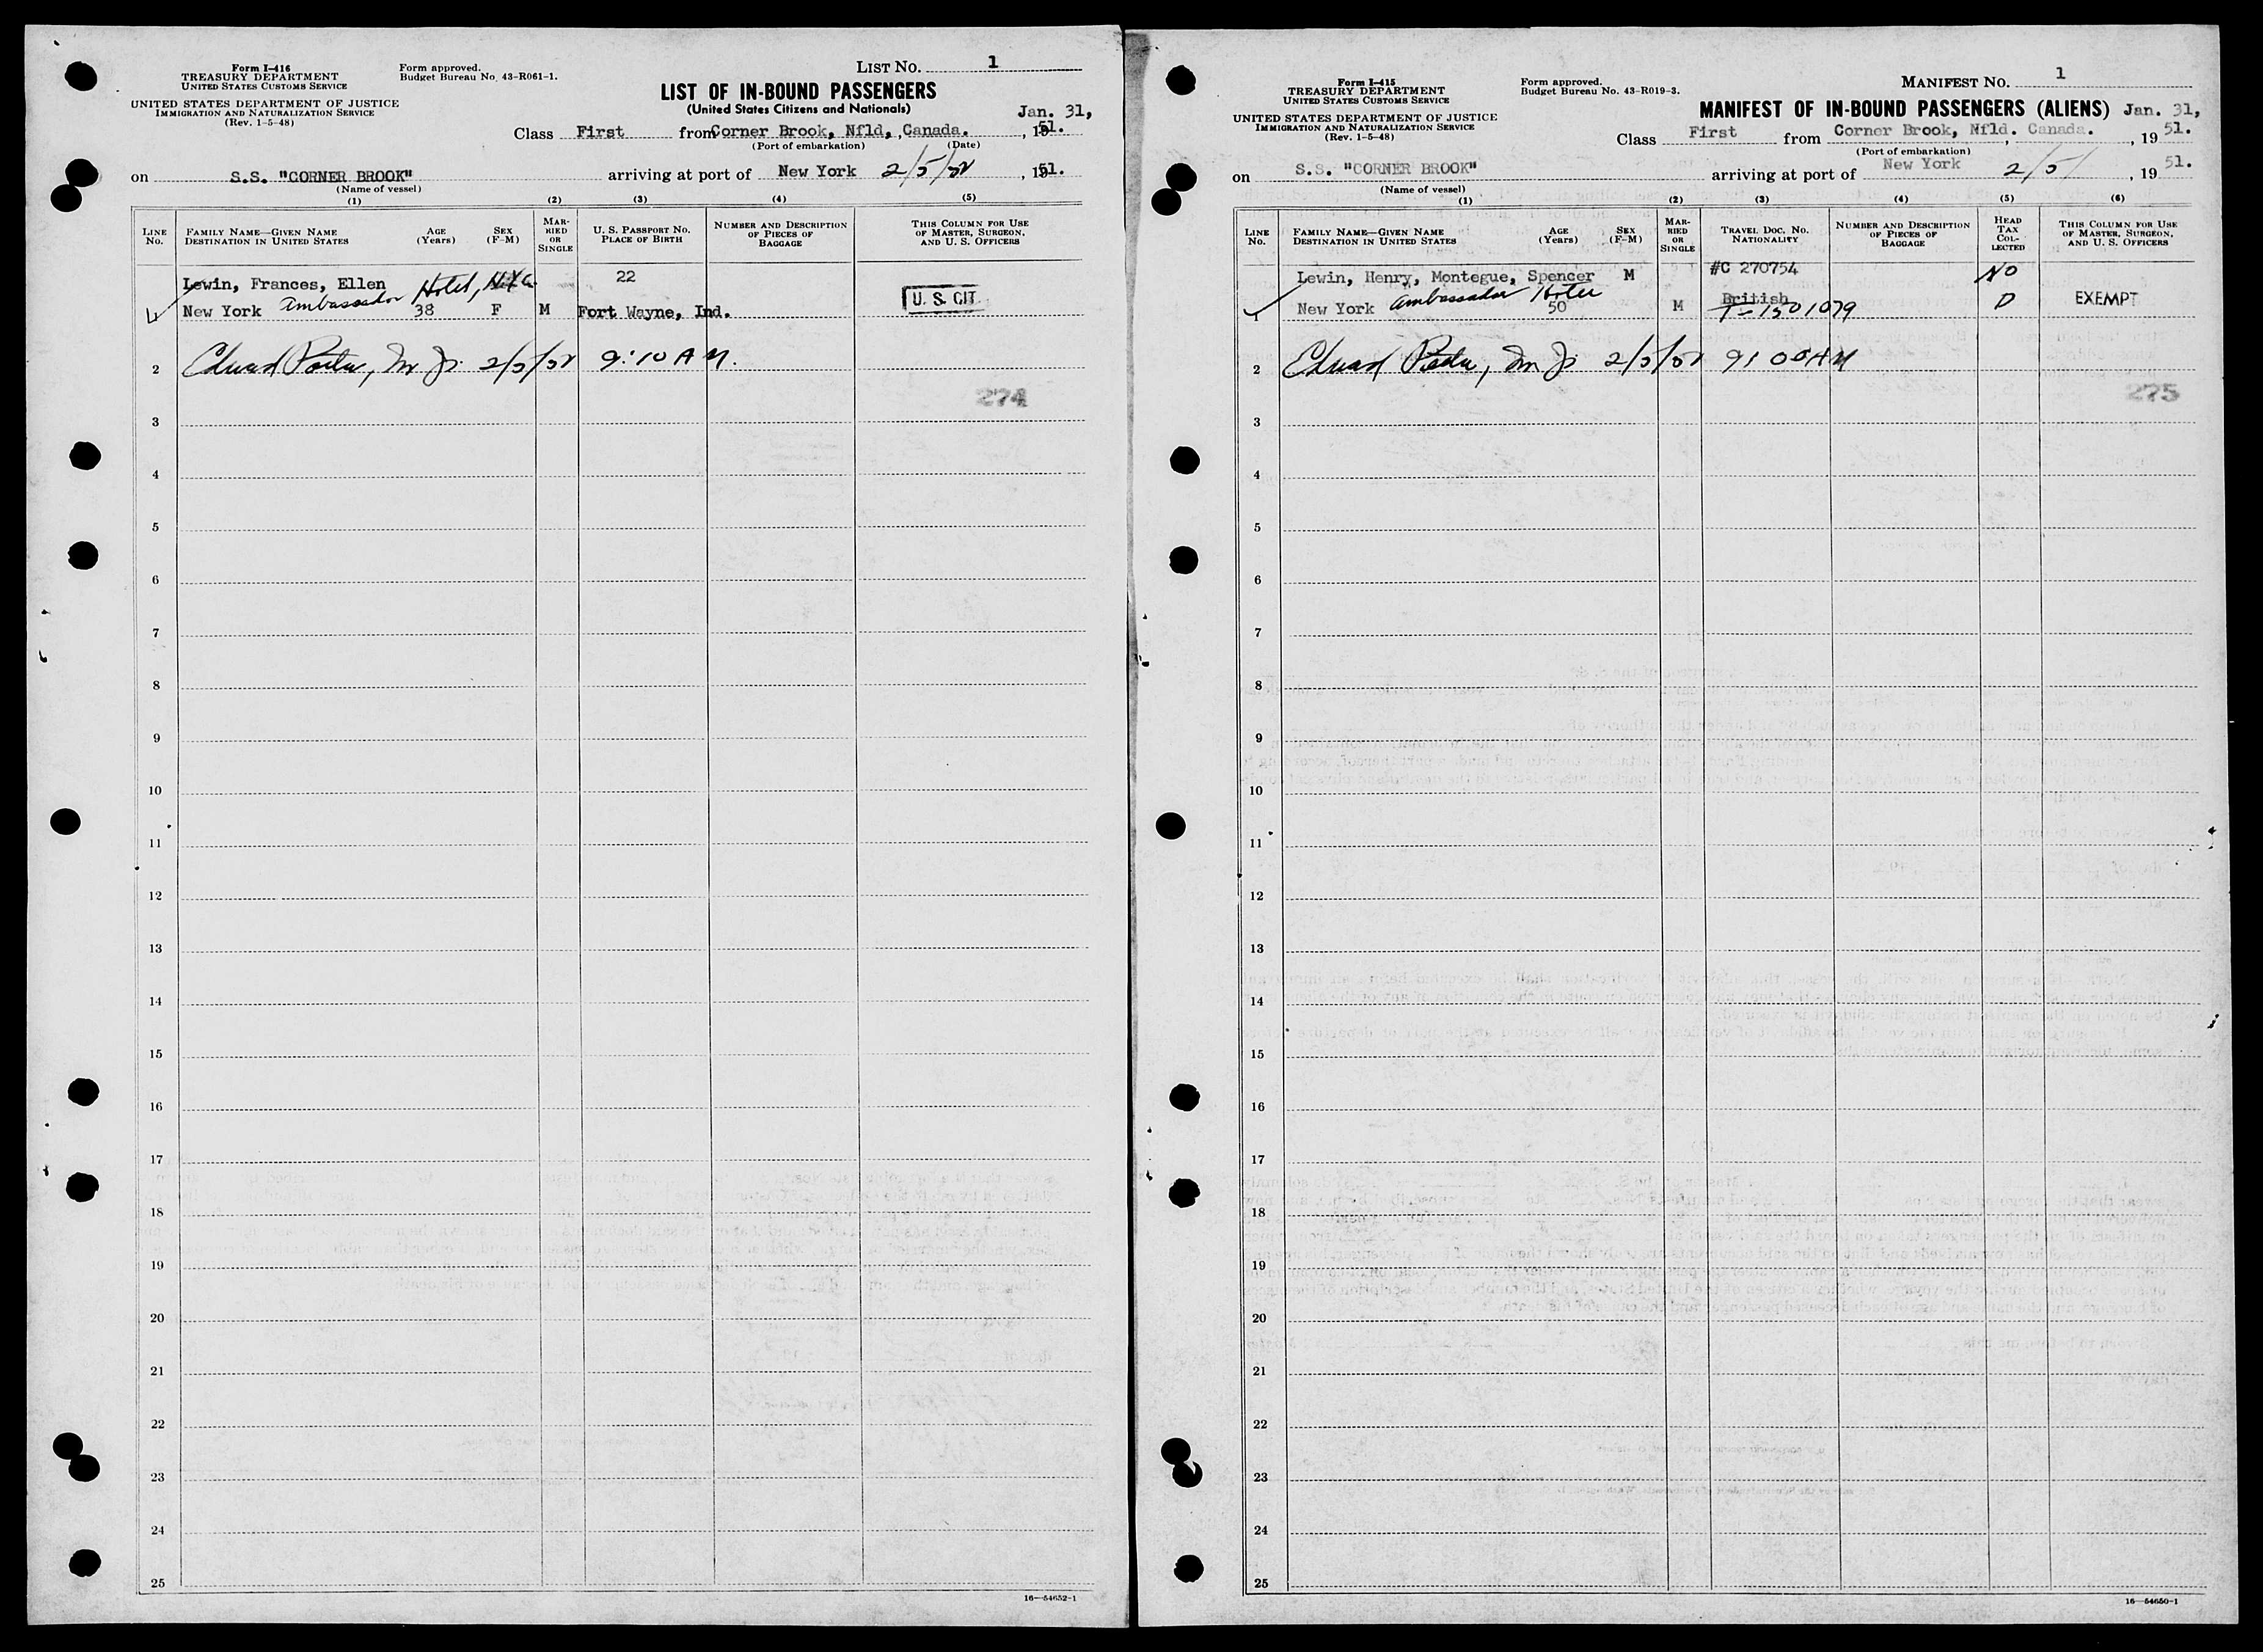 Form I-416
TREASURY DEPARTMENT
UNITED STATES CUSTOMS SERVICE
UNITED STATES DEPARTMENT OF JUSTICE
IMMIGRATION AND NATURALIZATION SERVICE
(Rev. 1-5-48)
Form approved.
Budget Bureau No. 43-R061-1.
LIST NO. 1
LIST OF IN-BOUND PASSENGERS
(United States Citizens and Nationals)
Jan. 31,
Class First from Corner Brook, Nfld, Canada. , 1951.
(Port of embarkation) (Date)
on S.S. "CORNER BROOK" arriving at port of New York 2/5/52 , 1951.
(Name of vessel)
(1) (2) (3) (4) (5)
LINE NO.
FAMILY NAME—GIVEN NAME
DESTINATION IN UNITED STATES
AGE (Years)
SEX (F-M)
MARRIED OR SINGLE
U. S. PASSPORT NO.
PLACE OF BIRTH
NUMBER AND DESCRIPTION OF PIECES OF BAGGAGE
THIS COLUMN FOR USE OF MASTER, SURGEON, AND U. S. OFFICERS
Lewin, Frances, Ellen 22
New York Ambassador Hotel, N.Y.C. 38 F M Fort Wayne, Ind. U. S. CIT.
2 2/5/52 9:10 A M.
274
3
4
5
6
7
8
9
10
11
12
13
14
15
16
17
18
19
20
21
22
23
24
25
16—54652-1
Form I-415
TREASURY DEPARTMENT
UNITED STATES CUSTOMS SERVICE
UNITED STATES DEPARTMENT OF JUSTICE
IMMIGRATION AND NATURALIZATION SERVICE
(Rev. 1-5-48)
Form approved.
Budget Bureau No. 43-R019-3.
MANIFEST NO. 1
MANIFEST OF IN-BOUND PASSENGERS (ALIENS) Jan. 31,
Class First from Corner Brook, Nfld. Canada. , 1951.
(Port of embarkation)
on S.S. "CORNER BROOK" arriving at port of New York 2/5/ , 1951.
(Name of vessel)
(1) (2) (3) (4) (5) (6)
LINE NO.
FAMILY NAME—GIVEN NAME
DESTINATION IN UNITED STATES
AGE (Years)
SEX (F-M)
MARRIED OR SINGLE
TRAVEL DOC. NO.
NATIONALITY
NUMBER AND DESCRIPTION OF PIECES OF BAGGAGE
HEAD TAX COLLECTED
THIS COLUMN FOR USE OF MASTER, SURGEON, AND U. S. OFFICERS
Lewin, Henry, Montegue, Spencer M #C 270754 NO
1 New York Ambassador Hotel 50 M British D EXEMPT
T-1501079
2 2/5/52 9:00 AM
275
3
4
5
6
7
8
9
10
11
12
13
14
15
16
17
18
19
20
21
22
23
24
25
16—54650-1